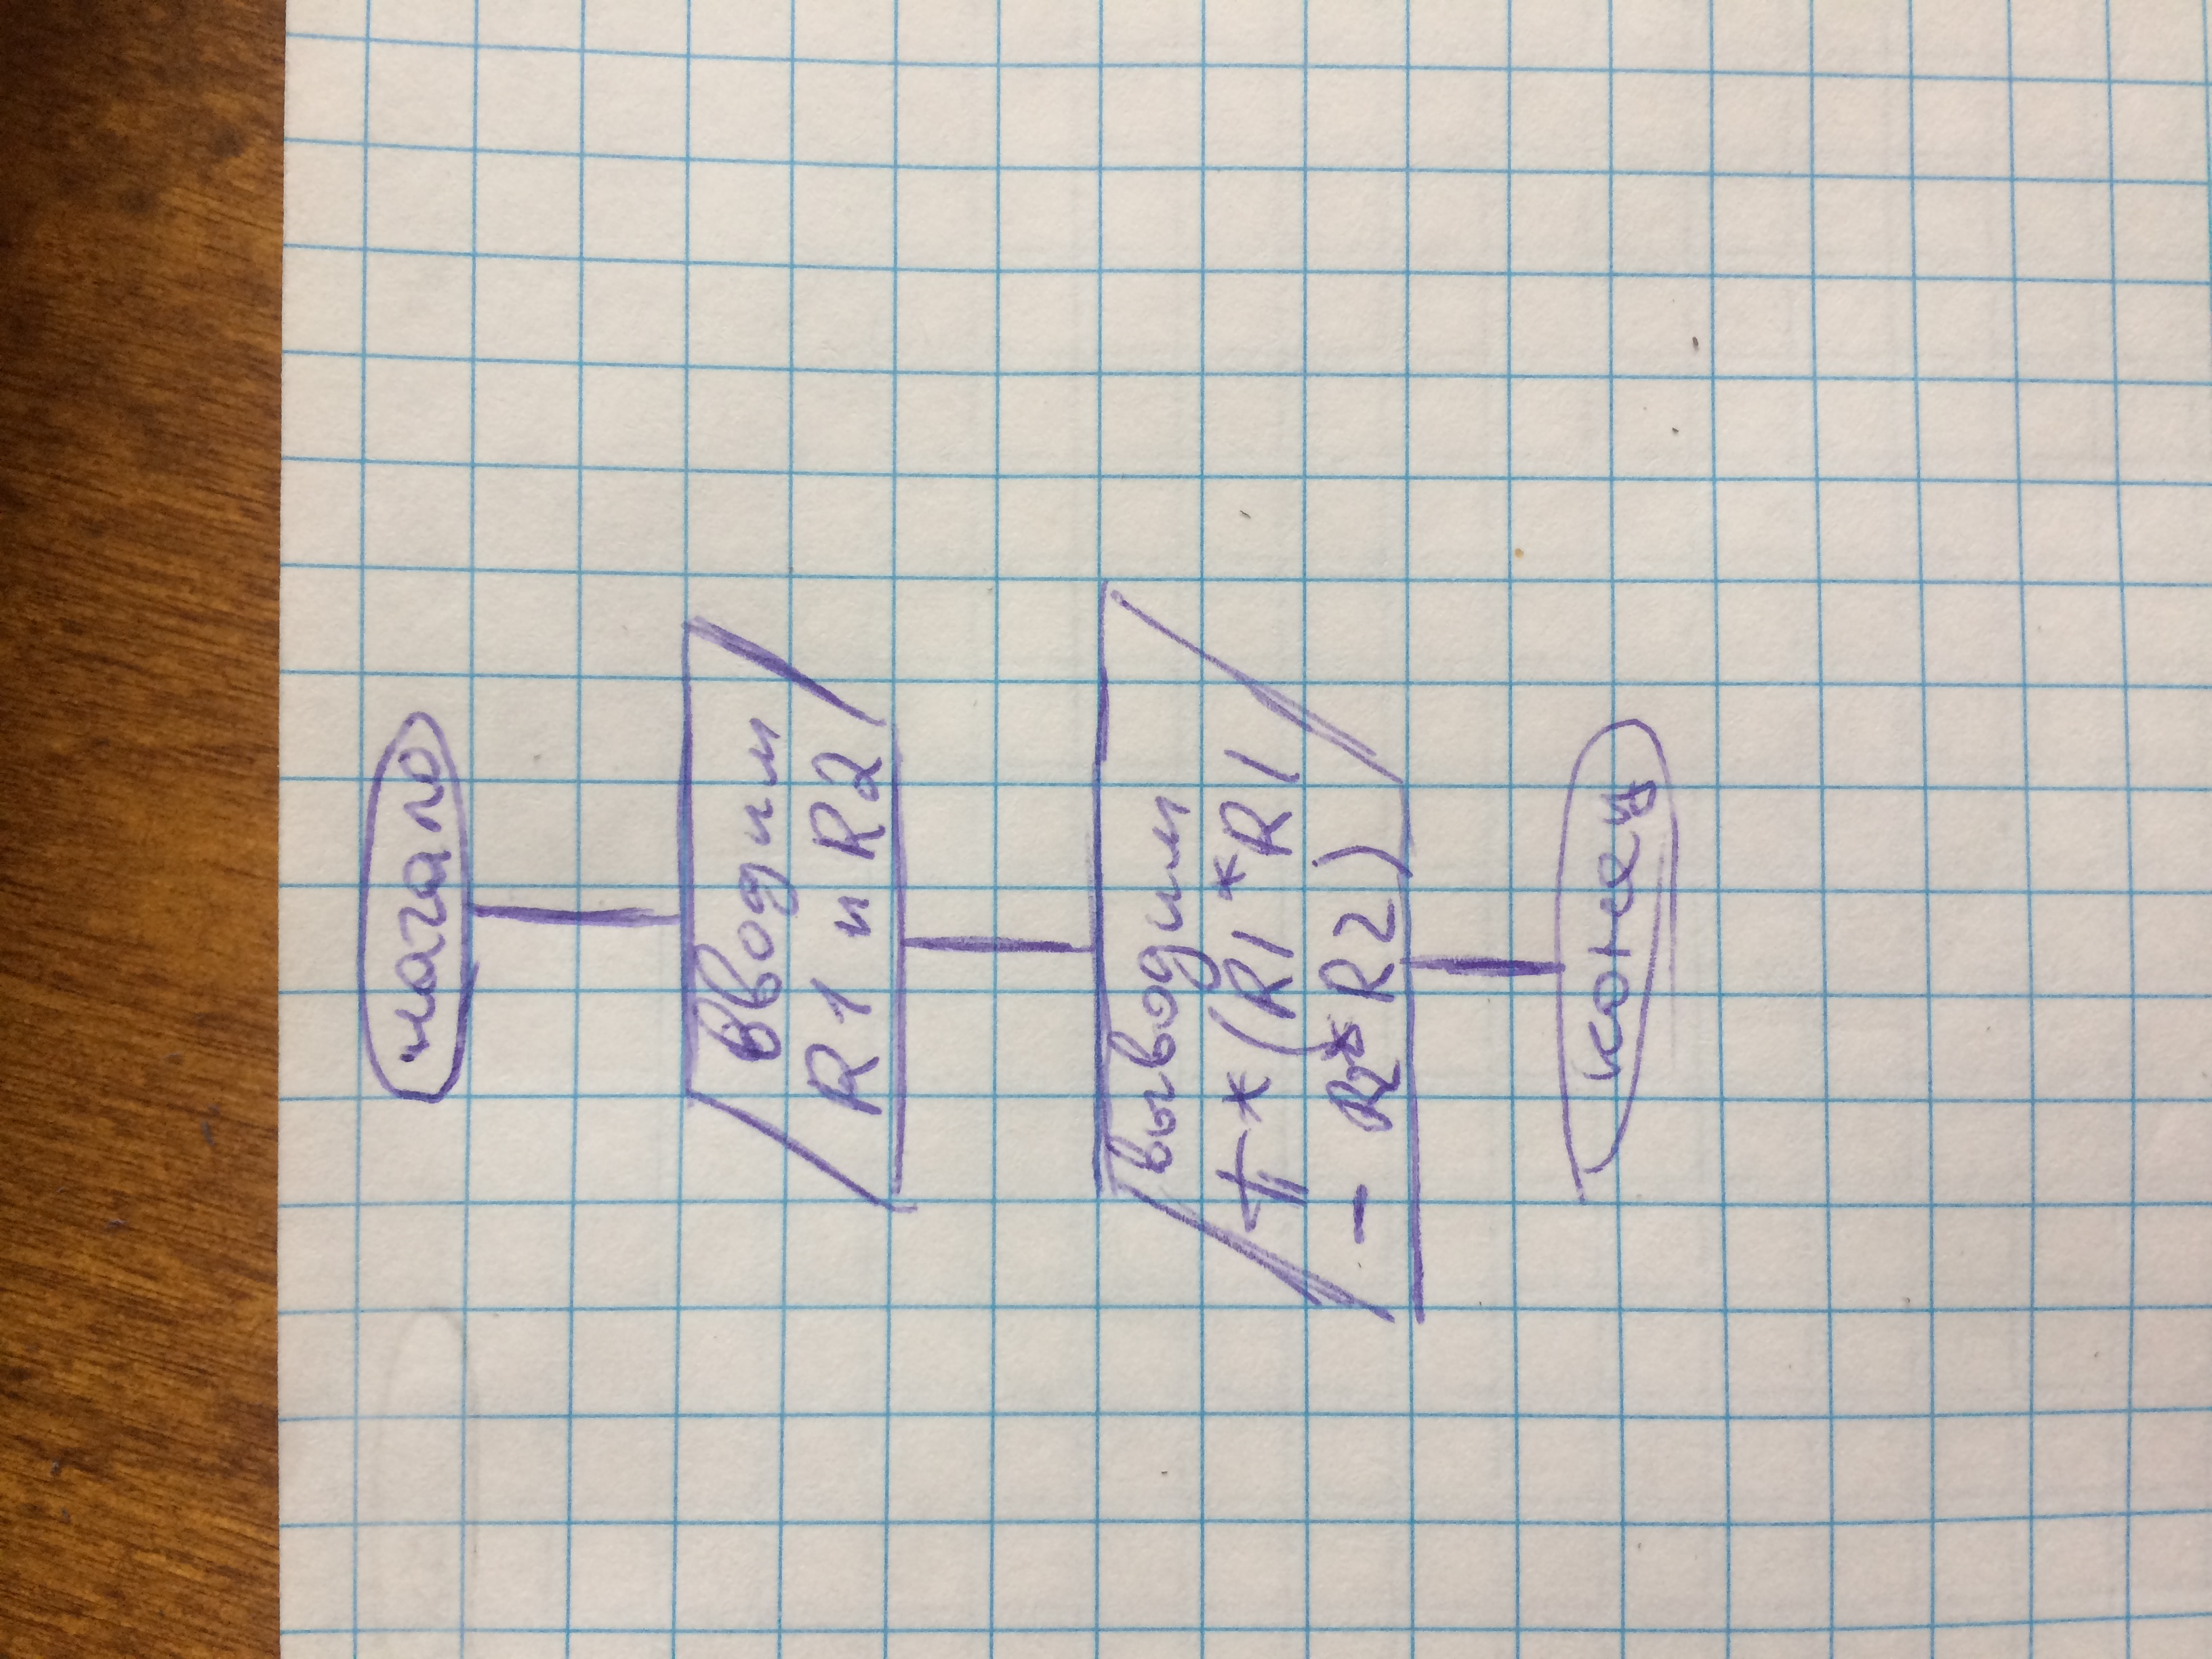 начало
вводим
R1 и R2
выводим
π*(R1*R1
- R2*R2)
конец